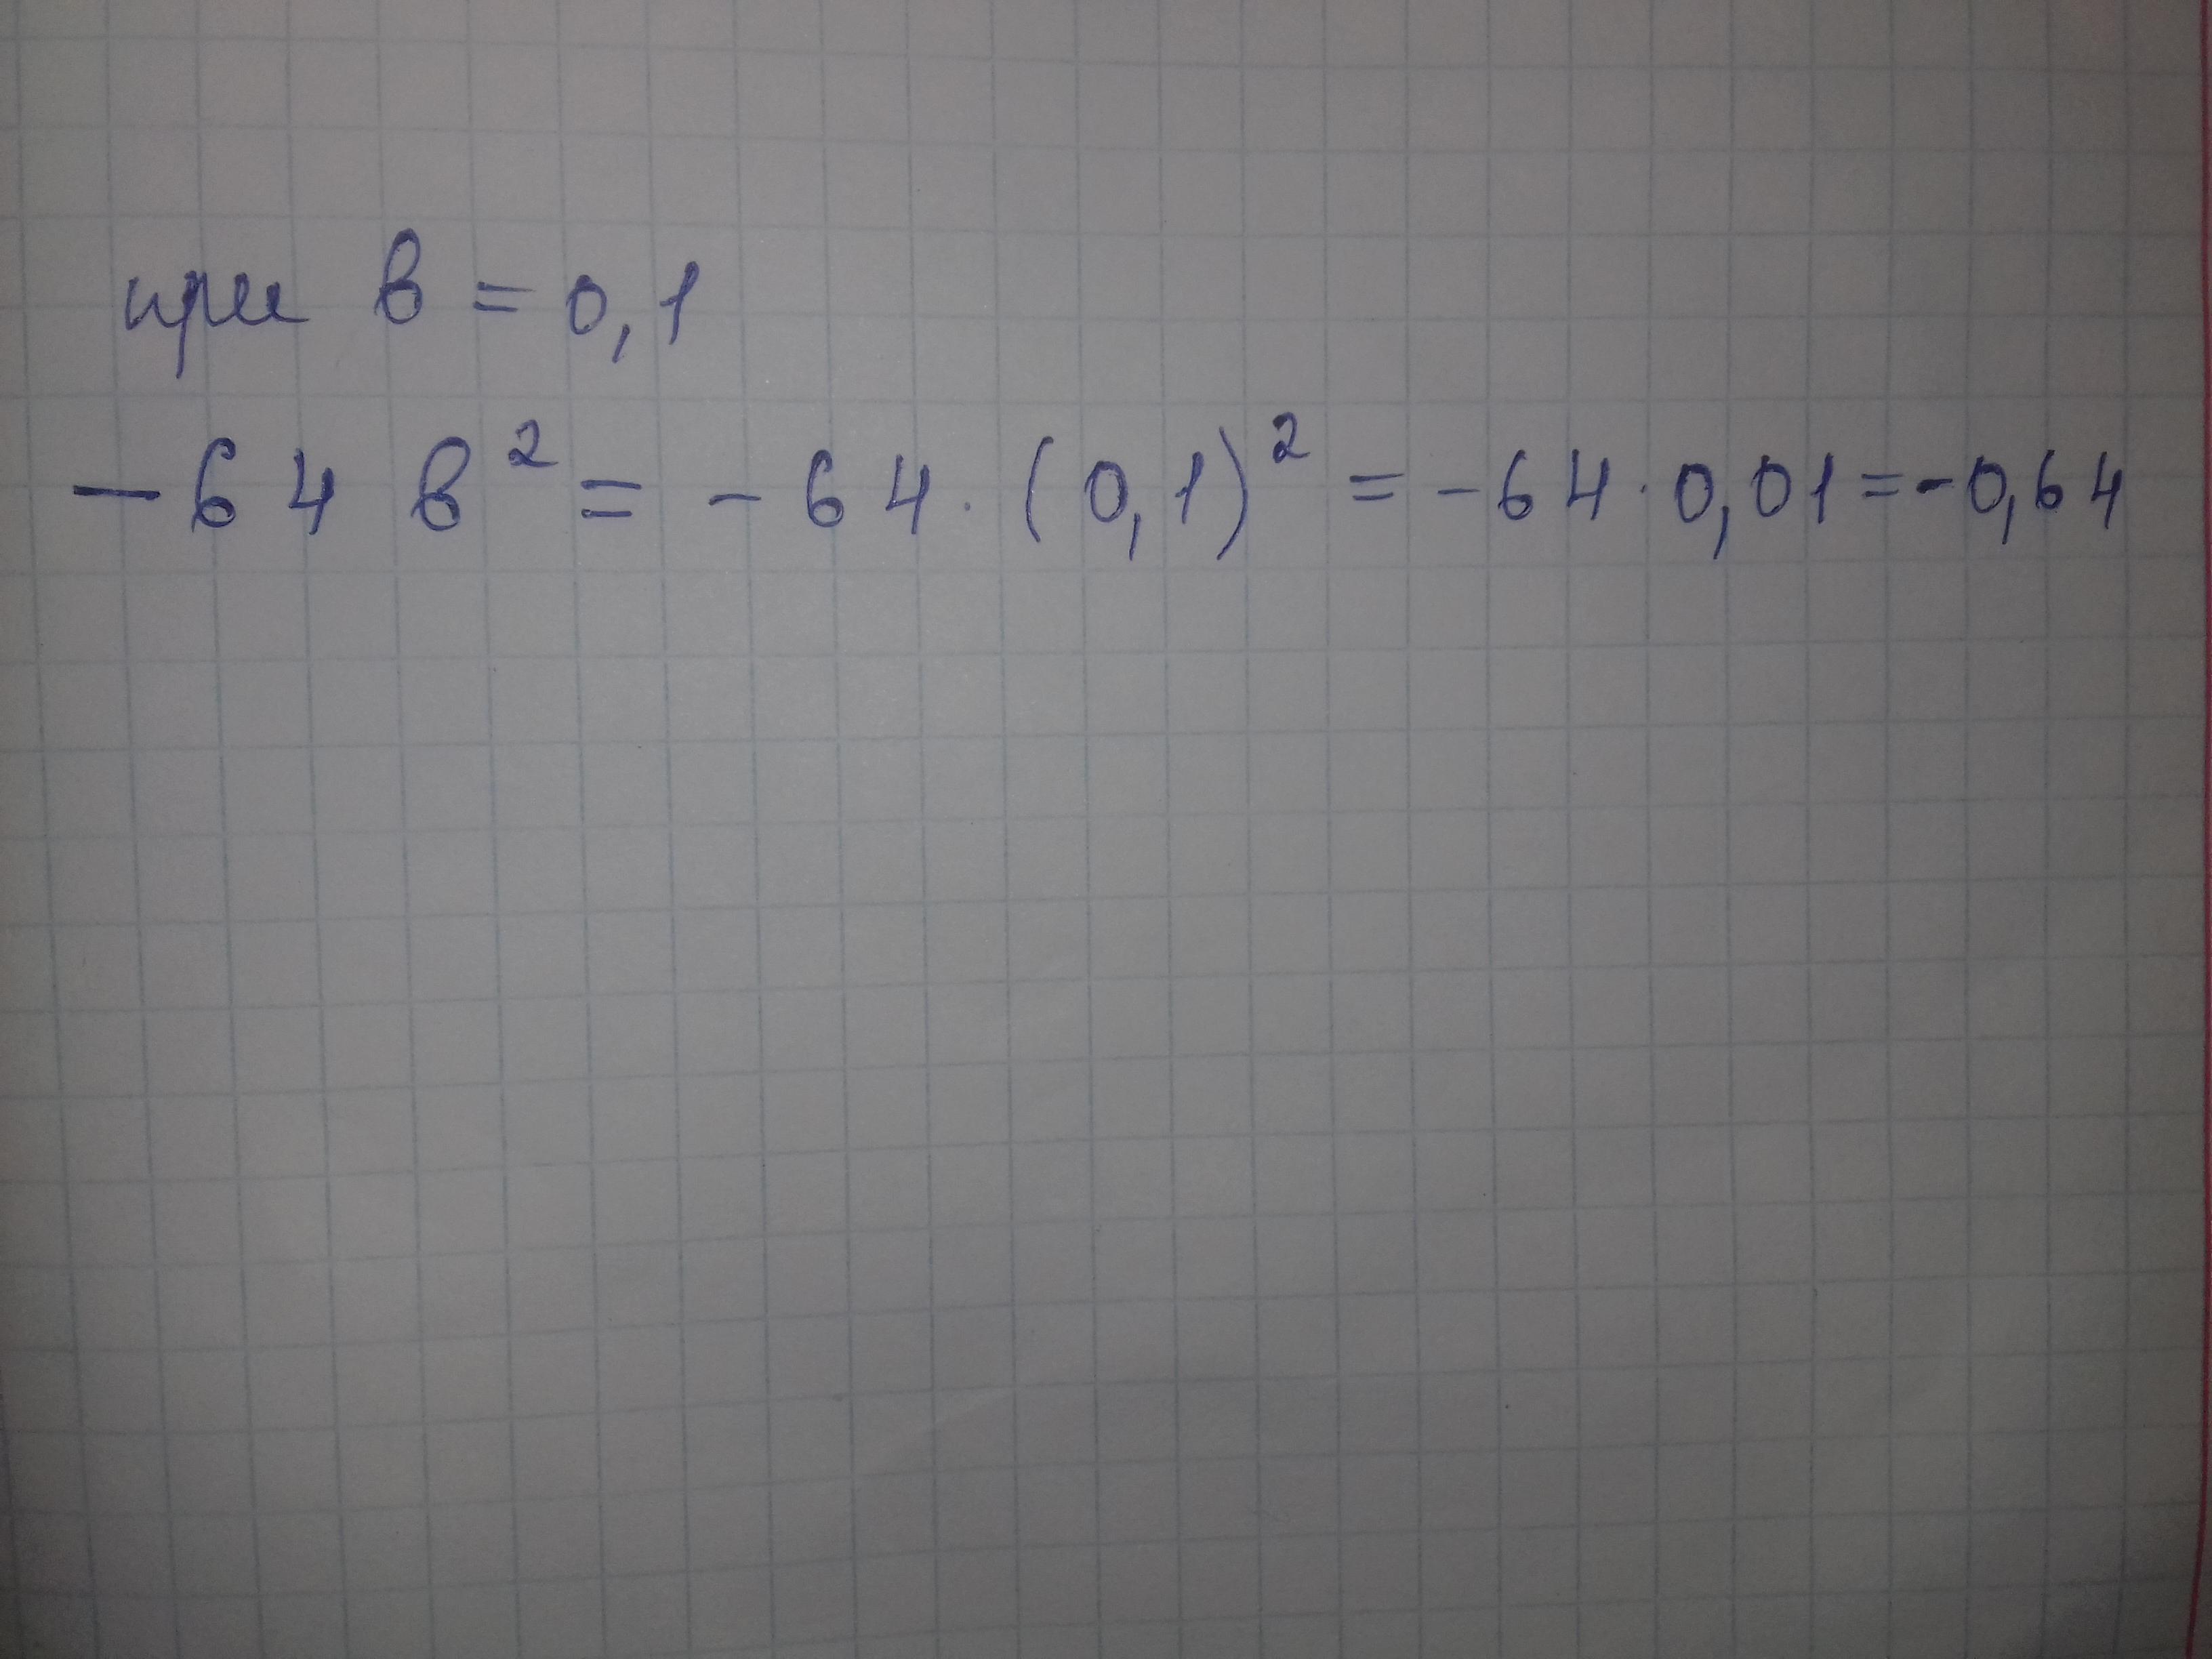 при в = 0,1
- 64 в² = - 64 · (0,1)² = -64 · 0,01 = -0,64